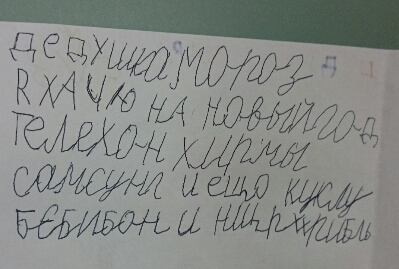 дедушка мороз
я хачю на новый год
телехон хирмы
самсунг и ещо куклу
бебибон и